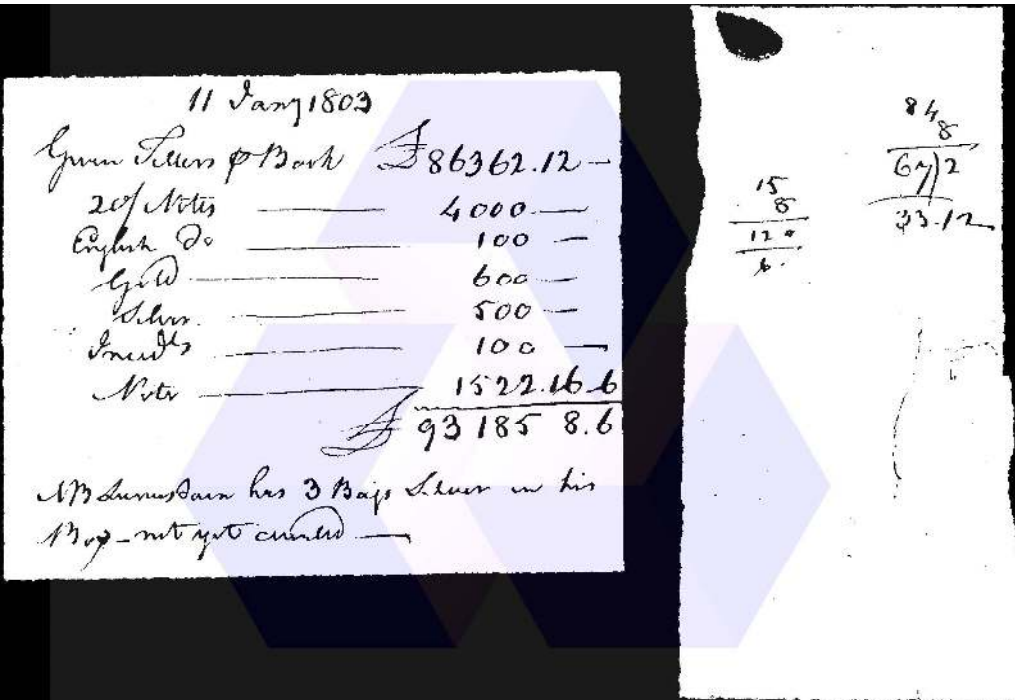 11 Jany 1803
Given Tellers Book £86362.12 —
20/ Notes — 4000 —
English Do — 100 —
Gold — 600 —
Silver — 500 —
— 100 —
Note — 1522.16.6
£ 93185 8.6
NB has 3 Bags Silver in his
Box - not yet counted —
84
8
67)2
33.12
15
8
120
6.